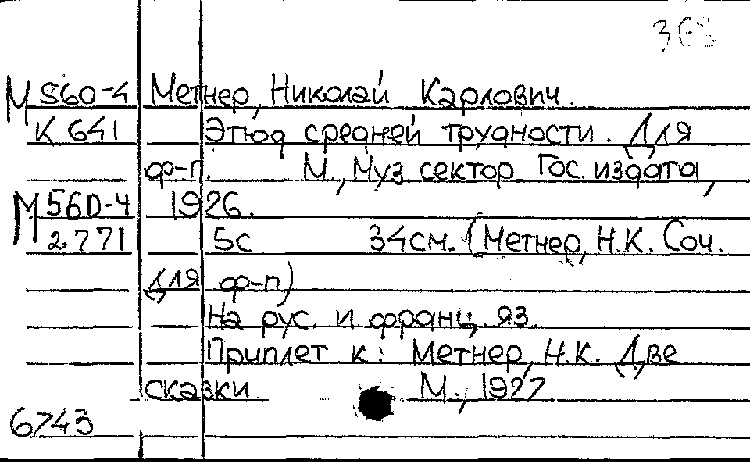 М 560-4 Метнер, Николай Карлович.
К 641 Этюд средней трудности. Для
ф-п. М., Муз сектор Гос. издата,
М 56D-4 1926.
2.771 5с 34см. (Метнер, Н.К. Соч.
для ф-п)
На рус. и франц. яз.
Приплет к: Метнер, Н.К. Две
сказки М., 1927
6743